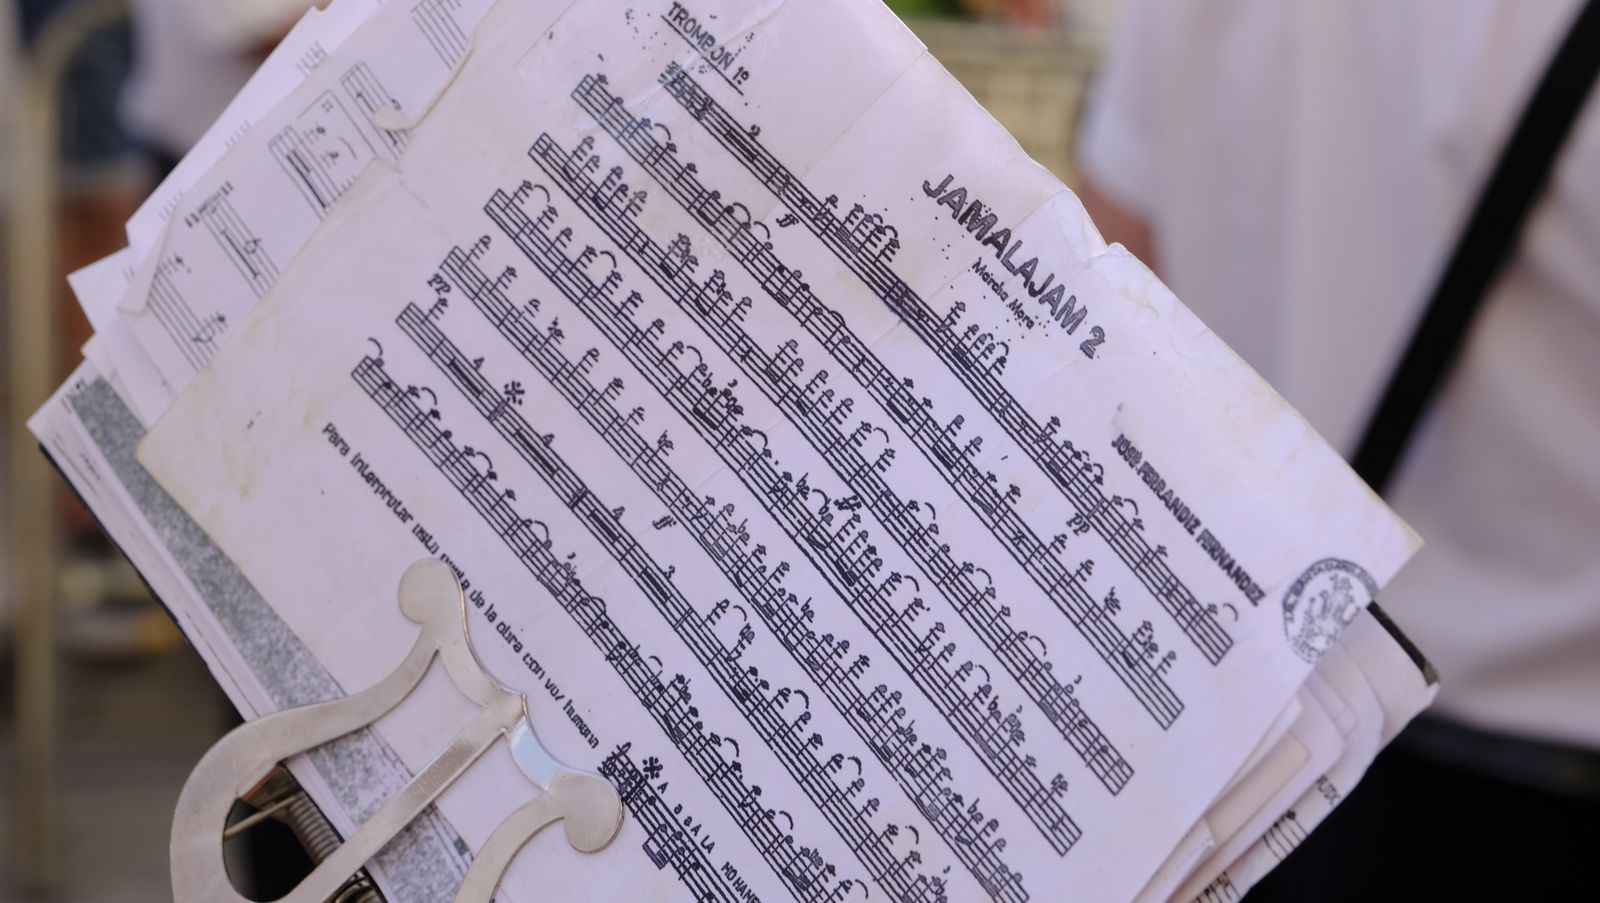 TROMBON 1º
JAMALAJAM 2
Marcha Mora
JOSE FERRANDIZ FERNANDEZ
2
ff
pp
ff
pp
ff
4
4
4
Para interpretar esta de la obra con voz humana
A a BA LA MOHAME